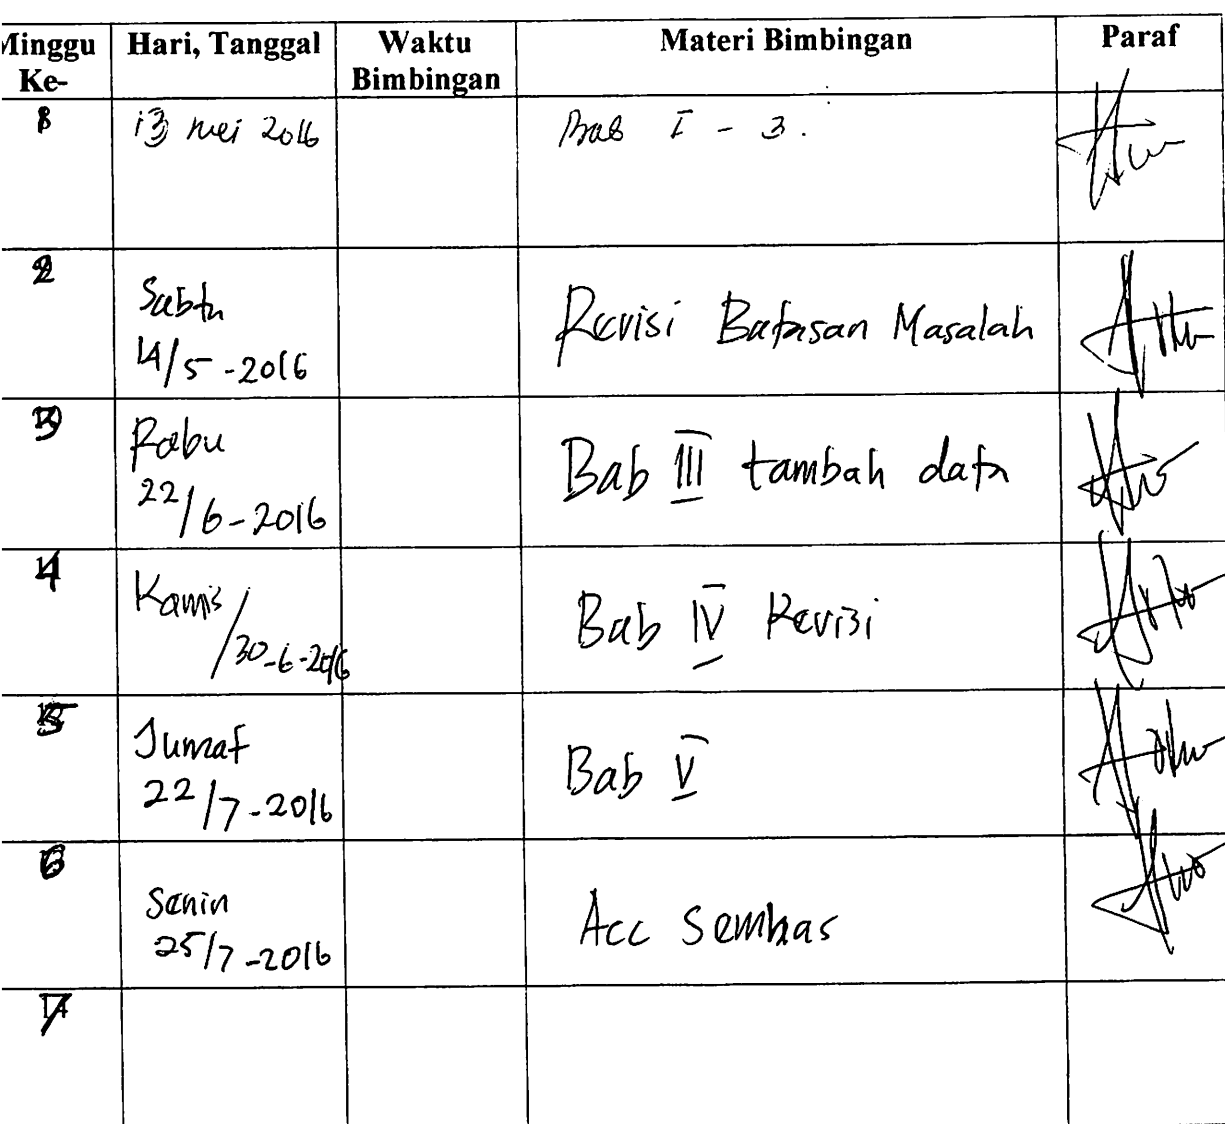 Minggu Ke- | Hari, Tanggal | Waktu Bimbingan | Materi Bimbingan | Paraf
1 | 13 Mei 2016 | Bab I - 3.
2 | Sabtu 14/5-2016 | Revisi Batasan Masalah
3 | Rabu 22/6-2016 | Bab III tambah data
4 | Kamis/30-6-2016 | Bab IV Revisi
5 | Jumat 22/7-2016 | Bab V
6 | Senin 25/7-2016 | Acc Semhas
7